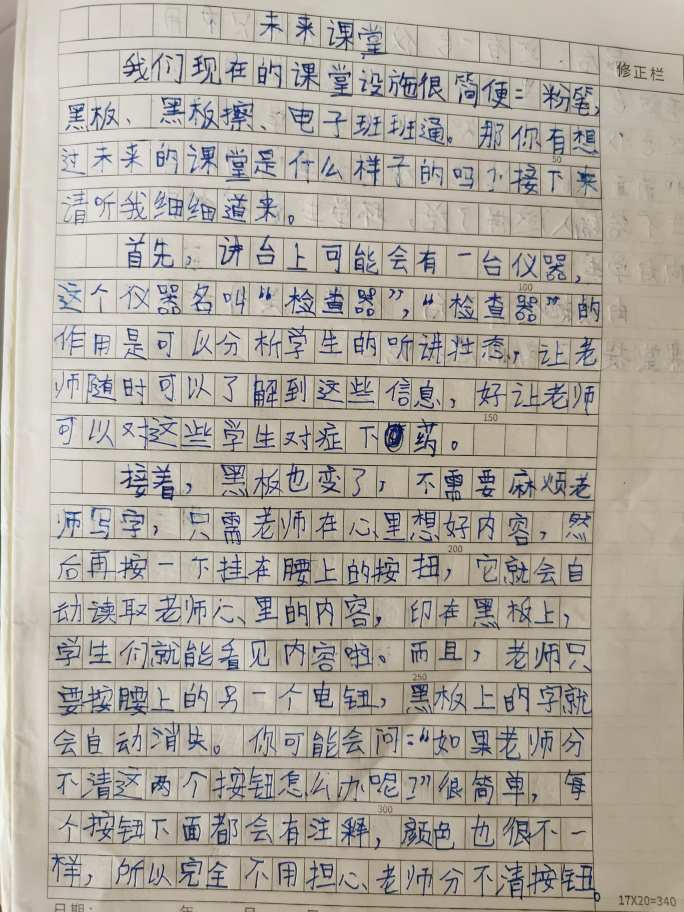 未来课堂
修正栏
我们现在的课堂设施很简便：粉笔，
黑板、黑板擦、电子班班通。那你有想
过未来的课堂是什么样子的吗？接下来
50
清听我细细道来。
首先，讲台上可能会有一台仪器，
这个仪器名叫“检查器”，“检查器”的
100
作用是可以分析学生的听讲状态，让老
师随时可以了解到这些信息，好让老师
可以对这些学生对症下药。
150
接着，黑板也变了，不需要麻烦老
师写字，只需老师在心里想好内容，然
后再按一下挂在腰上的按扭，它就会自
200
动读取老师心里的内容，印在黑板上，
学生们就能看见内容啦。而且，老师只
要按腰上的另一个电钮，黑板上的字就
250
会自动消失。你可能会问：“如果老师分
不清这两个按钮怎么办呢？”很简单，每
个按钮下面都会有注释，颜色也很不一
300
样，所以完全不用担心老师分不清按钮。
17X20=340
日期： 年 月 日